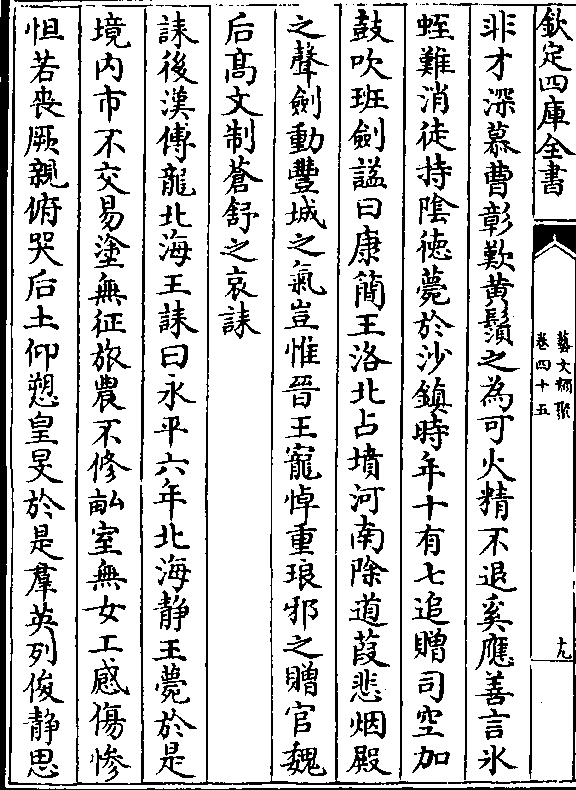 欽定四庫全書
藝文類聚
卷四十五
十九
非才深慕曹彰歎黄鬚之為可火精不退奚應善言氷
蛭難消徒持隂徳薨於沙鎮時年十有七追贈司空加
鼓吹班劍諡曰康簡王洛北占墳河南除道葭悲烟殿
之聲劍動豐城之氣豈惟晉王寵悼重琅邪之贈官魏
后髙文制蒼舒之哀誄
誄後漢傅龍北海王誄曰永平六年北海静王薨於是
境内市不交易塗無征旅農不修畝室無女工感傷慘
怛若喪厥親俯哭后土仰愬皇旻於是羣英列俊静思